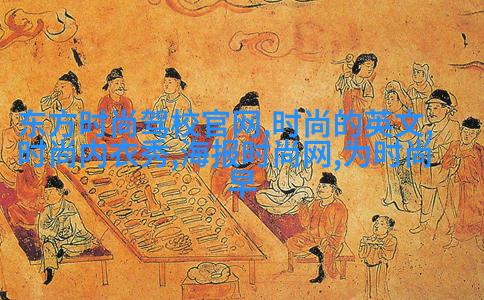 东方时尚驾校官网,时尚的英文,
时尚内衣秀,海报时尚网,为时尚
早